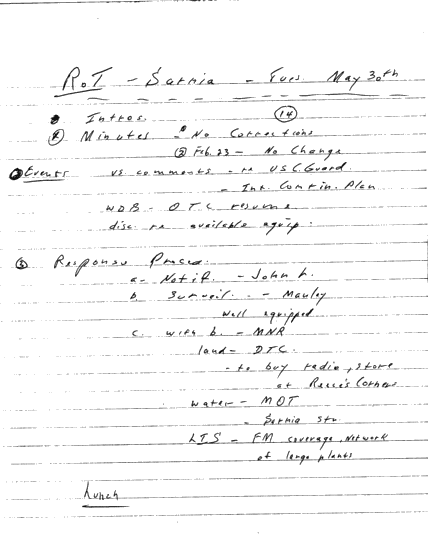 RoT - Sarnia - Tues. May 30th
Intros. 14
Minutes - No Corrections
② Feb. 23 - No Change
Events us. comments - re US CGuard
- Int. Contin. Plan
WDB - OTC resume
disc. re available equip.
Response
a- Notif. - John L.
b. Surveil. - Manley
well equipped
c. with b. - MNR
land - DTC.
- to buy radio, store
at Reece's Corners
water - MOT
- Sarnia Stn
LIS - FM coverage, Network
of large plants
Lunch